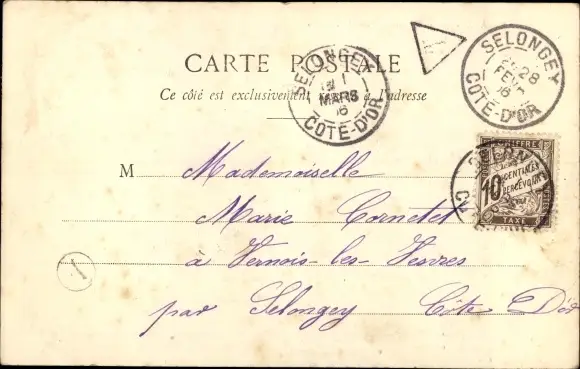 CARTE POSTALE
Ce côté est exclusivement à l'adresse
SELONGEY
1
MARS
06
CÔTE-D'OR
SELONGEY
28
FEVR
06
CÔTE-D'OR
CHIFFRE
10
CENTIMES
À
PERCEVOIR
TAXE
M Mademoiselle
Marie Cornetet
à Vernois-les-Vesvres
par Selongey Côte D'or
1